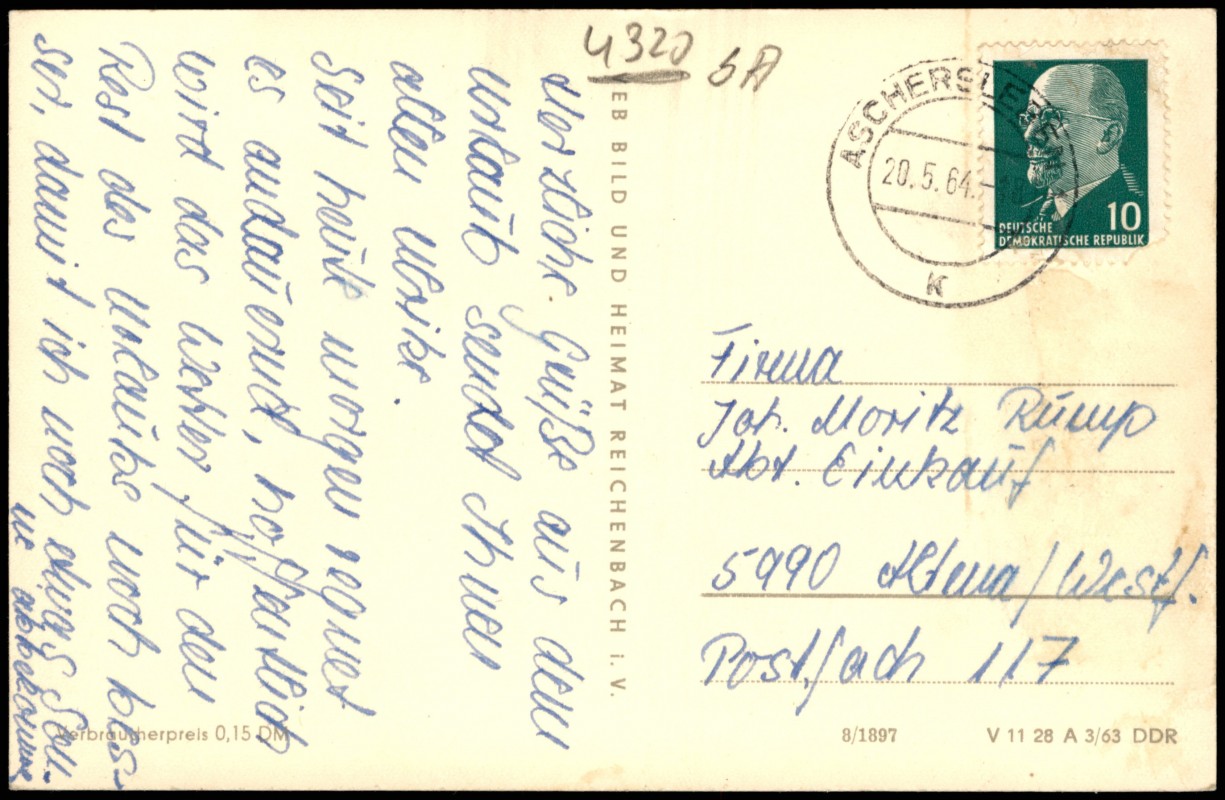 4320 SA
ASCHERSLEBEN
20.5.64.-18
K
10
DEUTSCHE
DEMOKRATISCHE REPUBLIK
Herzliche Grüße aus dem
Urlaub sendet Ihnen
allen Ulrike.
Seit heute morgen regnet
es andauernd, hoffentlich
wird das Wetter für den
Rest des Urlaubs noch bes-
ser, damit ich noch etwas Son-
ne abbekomme
VEB BILD UND HEIMAT REICHENBACH i. V.
Firma
Joh. Moritz Rump
Abt. Einkauf
5990 Altena/Westf.
Postfach 117
Verbraucherpreis 0,15 DM
8/1897
V 11 28 A 3/63 DDR